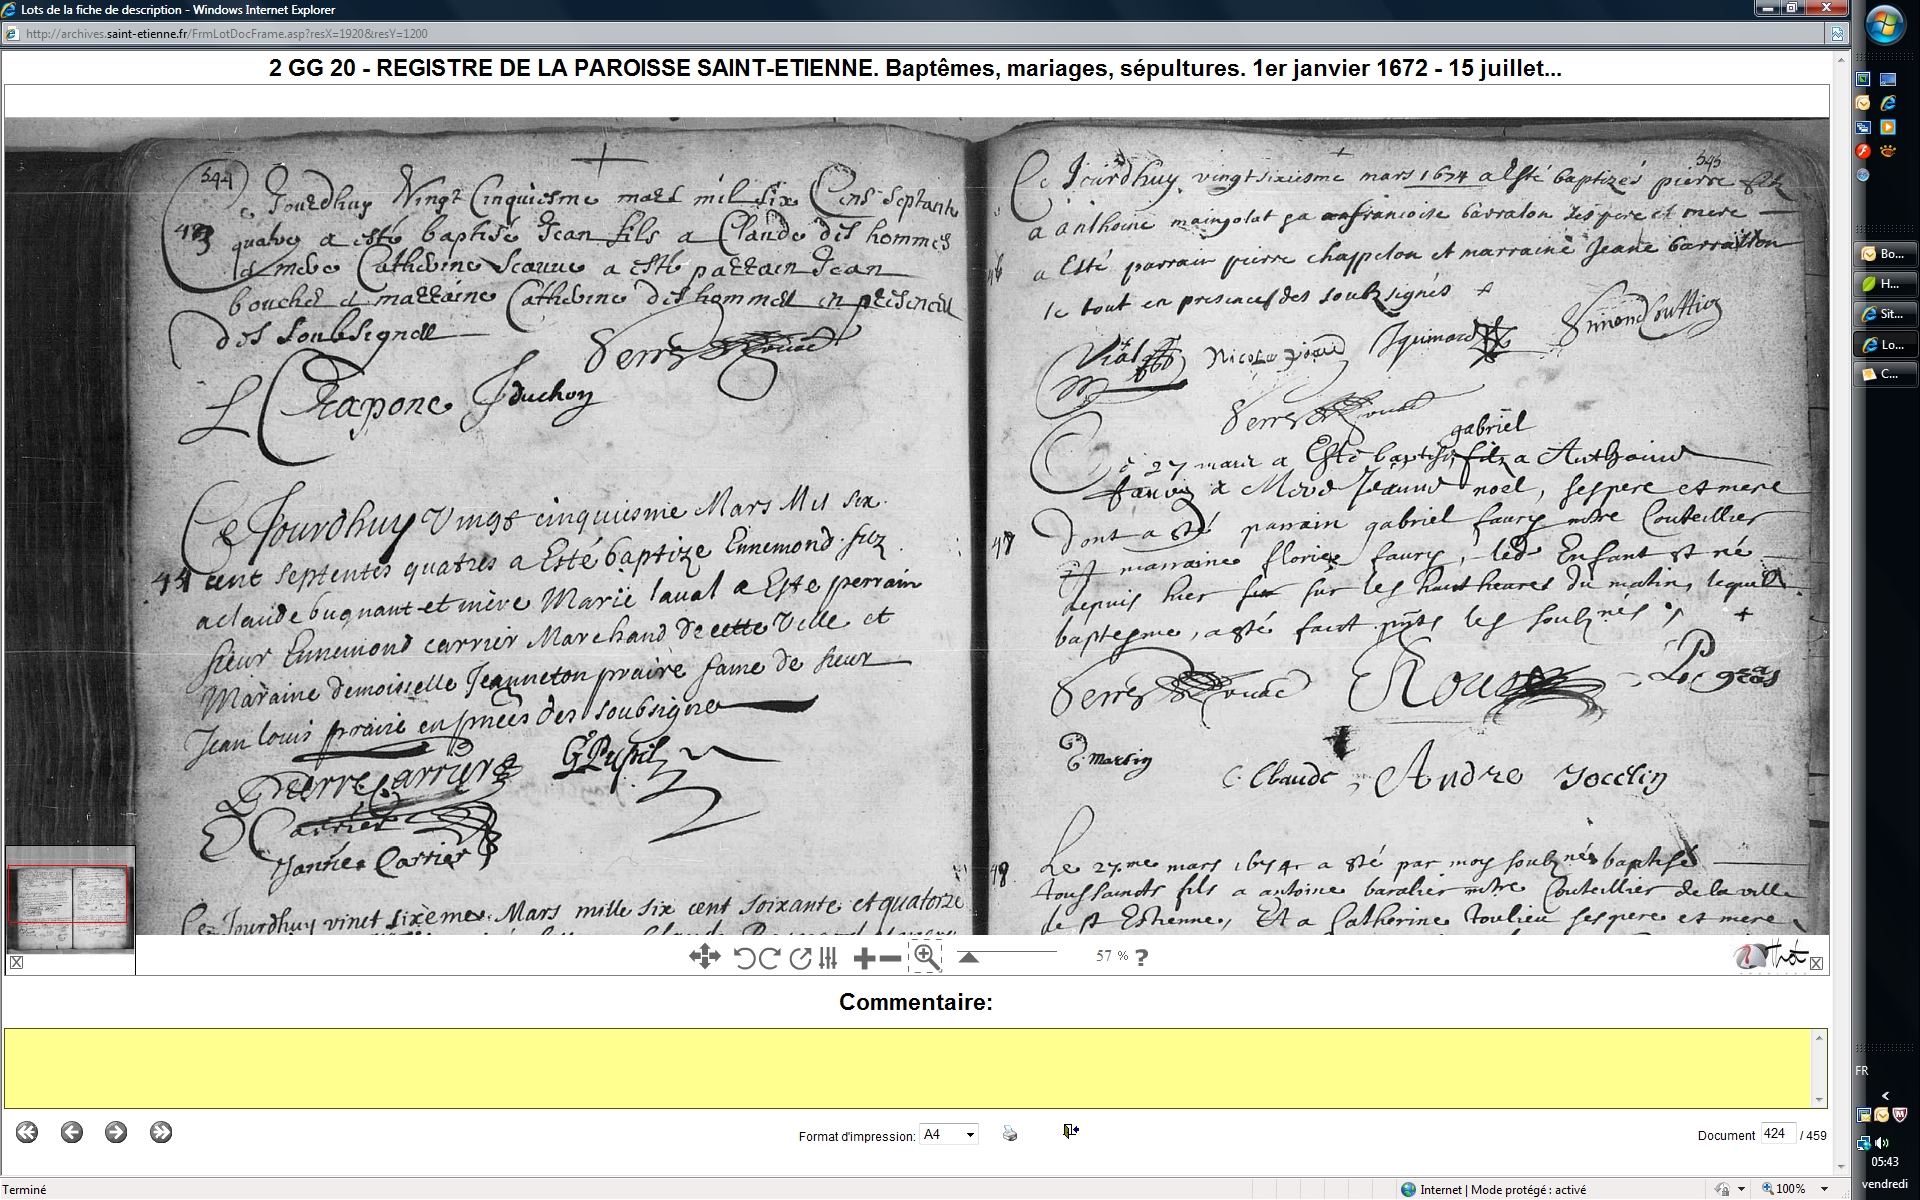 Lots de la fiche de description - Windows Internet Explorer
http://archives.saint-etienne.fr/FrmLotDocFrame.asp?resX=1920&resY=1200
2 GG 20 - REGISTRE DE LA PAROISSE SAINT-ETIENNE. Baptêmes, mariages, sépultures. 1er janvier 1672 - 15 juillet...
544
Ce Jourdhuy Vingt Cinquiesme mars mil six Cens septante
43 quatre a esté baptisé Jean fils a Claude des hommes
et mere Catherine a esté parrain Jean
bouchet et marraine Catherine des hommes en presence
des soubsignes
Crapone J duchon
Ce Jourdhuy Vingt cinquiesme Mars Mil six
44 cent septentes quatres a Esté baptize Ennemond filz
a claude buquant et mère Marie laual a Esté perrain
sieur Ennemond carrier Marchand de cette Ville et
Maraine demoisselle Jeanneton praire fame de sieur
Jean louis praire en pnces des soubsigne
Pierre Carrier G Pupil
Carrier
Carrier
Ce Jourdhuy vinct sixème Mars mille six cent soixante et quatorze
545
Ce Jourdhuy vingtsixiesme mars 1674 a esté baptizés pierre filz
a anthoine maingolat françoise barralon ses pere et mere
46 a Esté parrain pierre chappelon et marraine Jeane barrallon
le tout en presences des soubsignés
Vial Nicolas Simond
gabriel
Ce 27 mars a Esté baptisé filz a Anthoine
faury a Mere Jeanne noel, ses pere et mere
47 dont a esté parrain gabriel faury mtre Couteillier
et marraine florie faury, led Enfant est né
depuis hier sur les huit heures du matin, lequel
baptesme, a esté faict pnts les soubznés
Rous
Martin C Claude André Jocelin
48 Le 27me mars 1674 a esté par moy soubzné baptisé
toussaincts fils a antoine baralier mtre Couteillier de la ville
de st Estienne, Et a Catherine toulieu ses pere et mere
57 % ?
Commentaire:
Format d'impression: A4
Document 424 / 459
Terminé
Internet | Mode protégé : activé
100%
Bo...
H...
Sit...
Lo...
C...
FR
05:43
vendredi